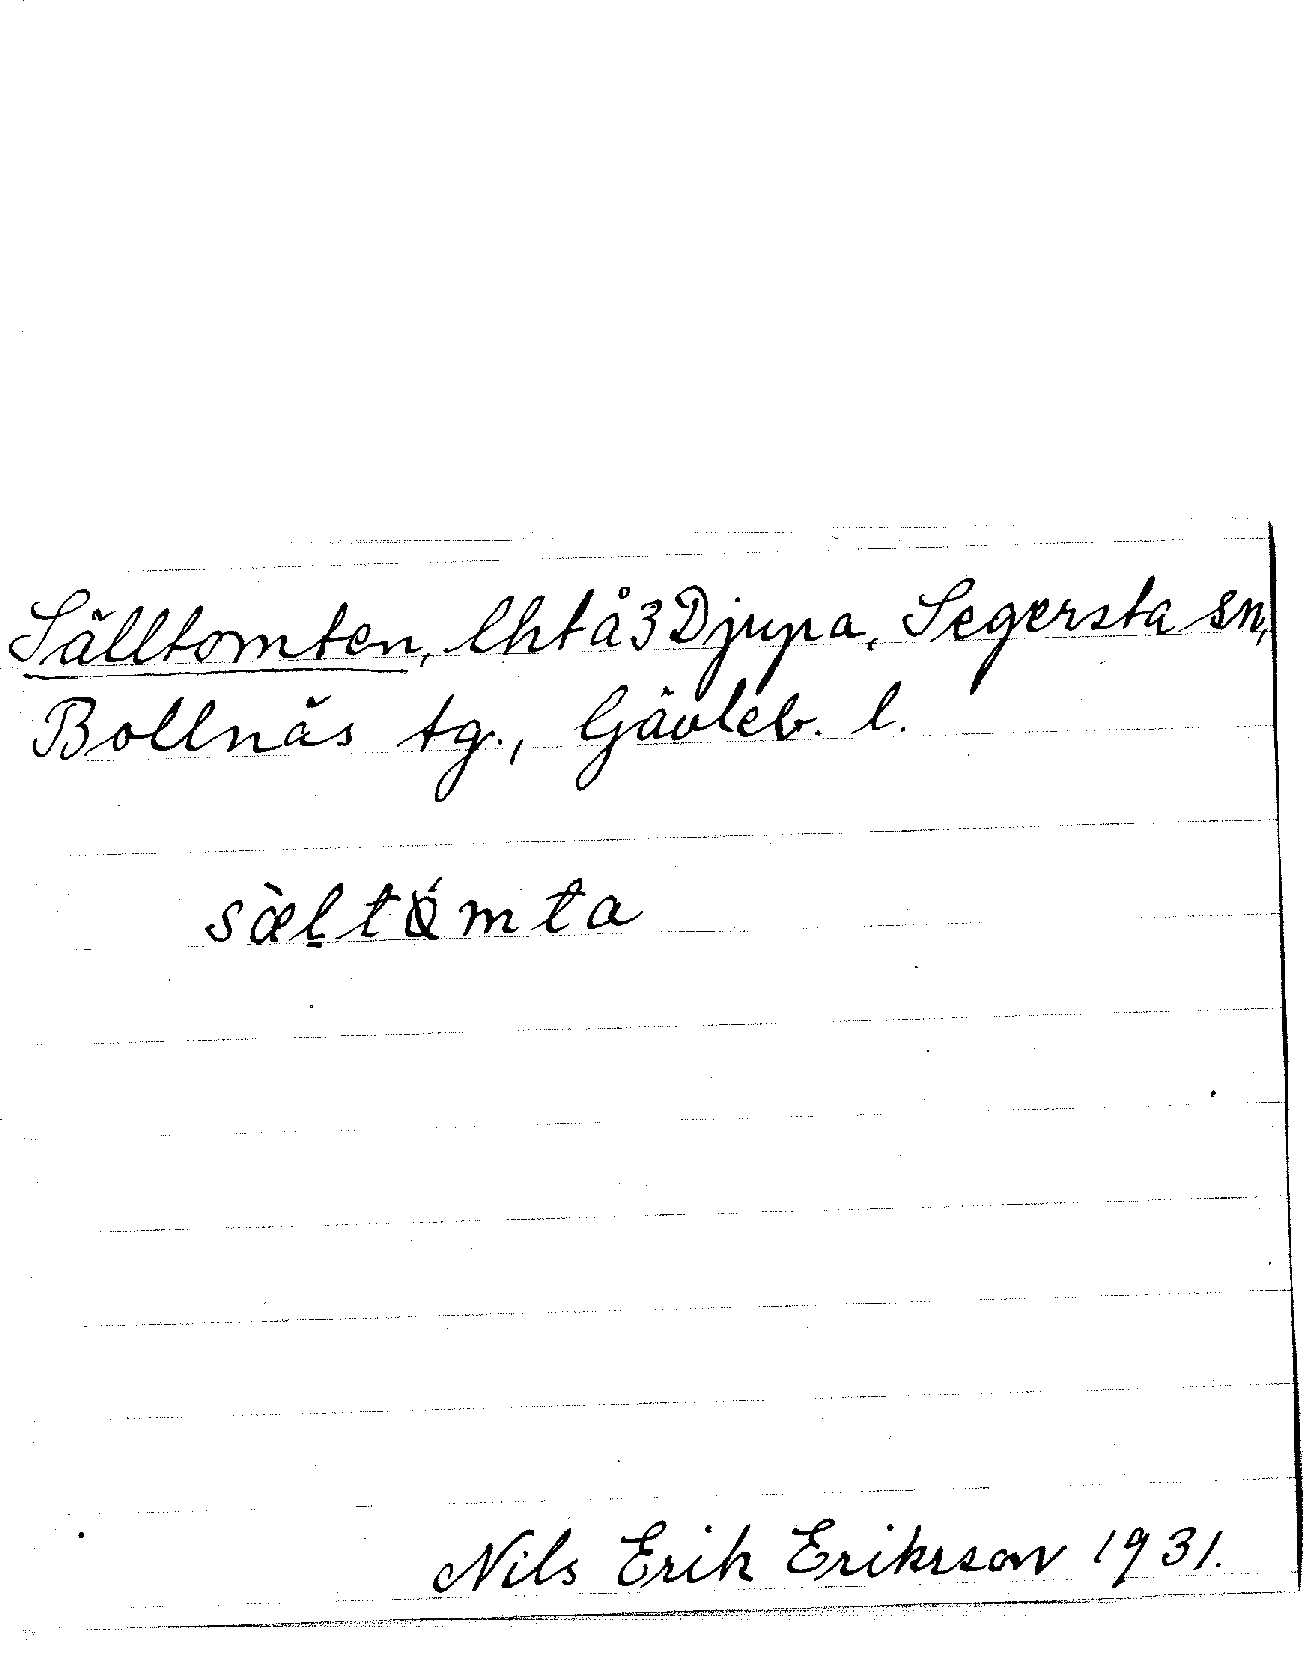 Sälltomten, lhtå 3 Djupa, Segersta sn,
Bollnäs tg., Gävleb. l.
sæ̀ḷtómta
Nils Erik Erikson 1931.